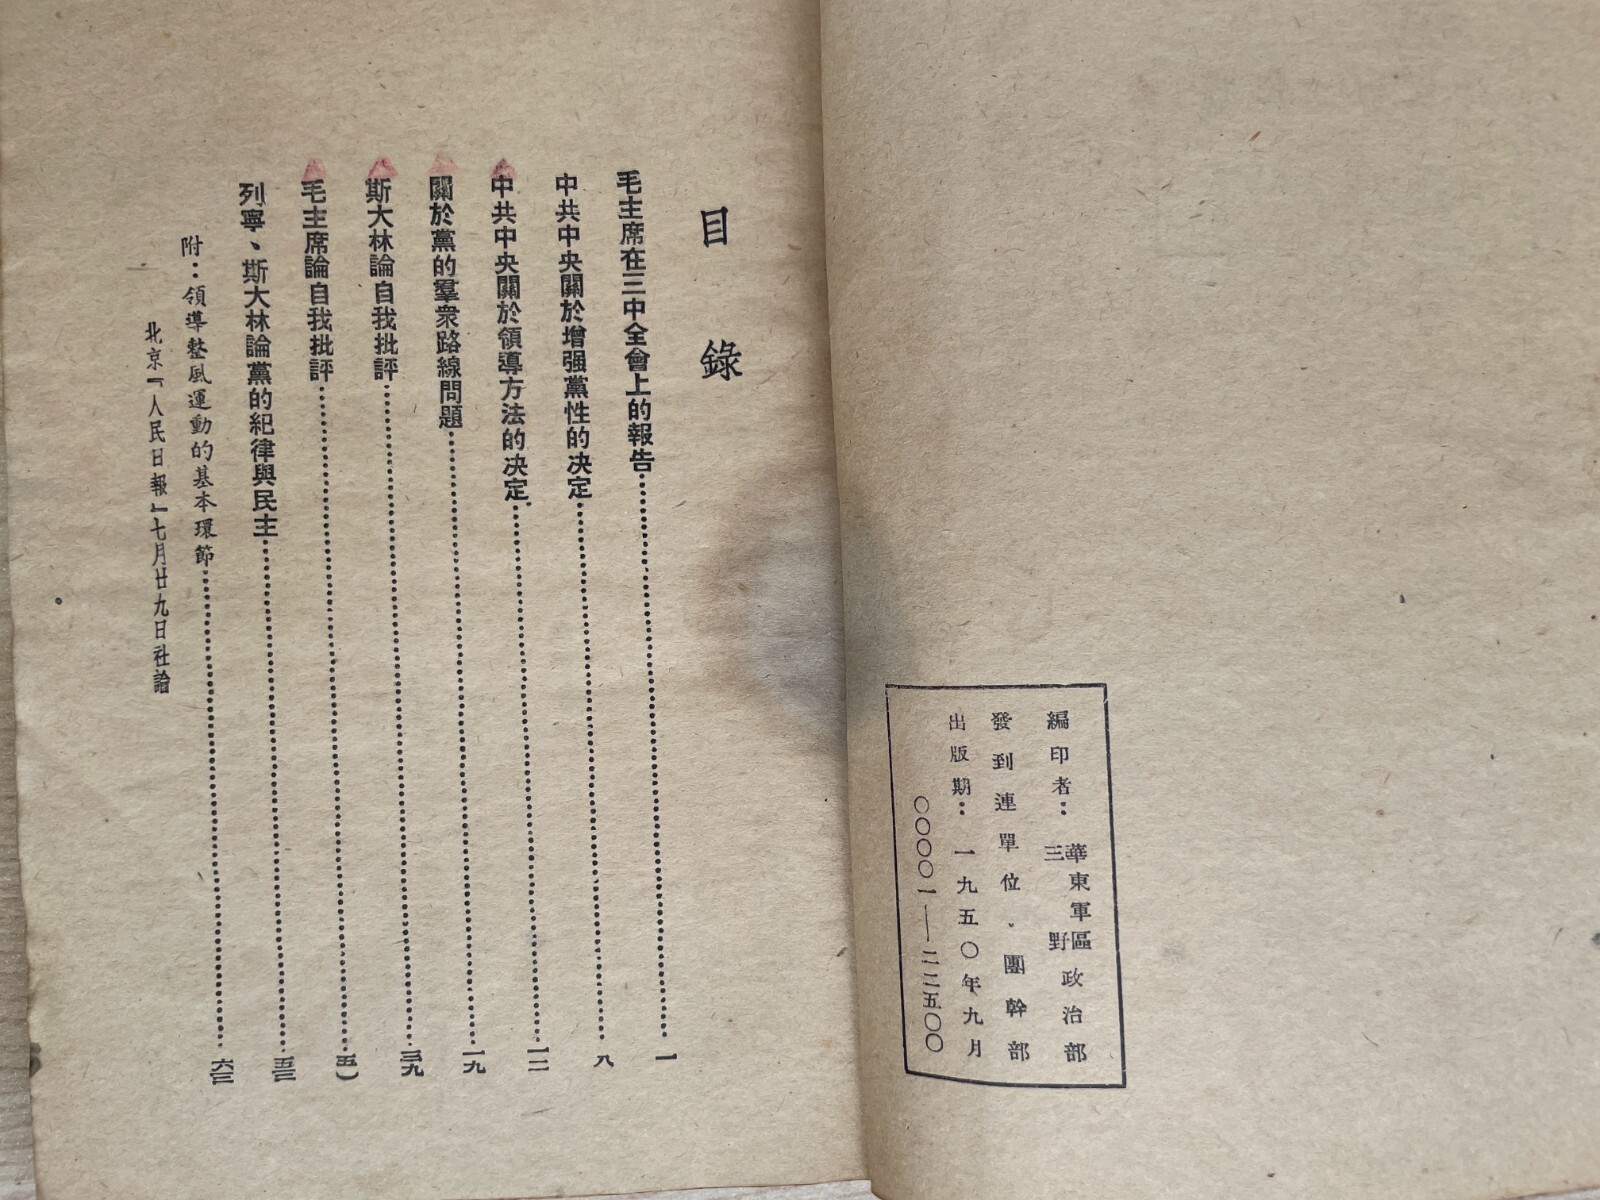 編印者：華東軍區三野政治部
發到連單位、團幹部
出版期：一九五〇年九月
〇〇〇〇一——二二五〇〇
目錄
毛主席在三中全會上的報告……一
中共中央關於增强黨性的決定……八
中共中央關於領導方法的決定……一二
關於黨的羣衆路線問題……一九
斯大林論自我批評……三九
毛主席論自我批評……五一
列寧、斯大林論黨的紀律與民主……五三
附：領導整風運動的基本環節……六三
北京「人民日報」七月廿九日社論